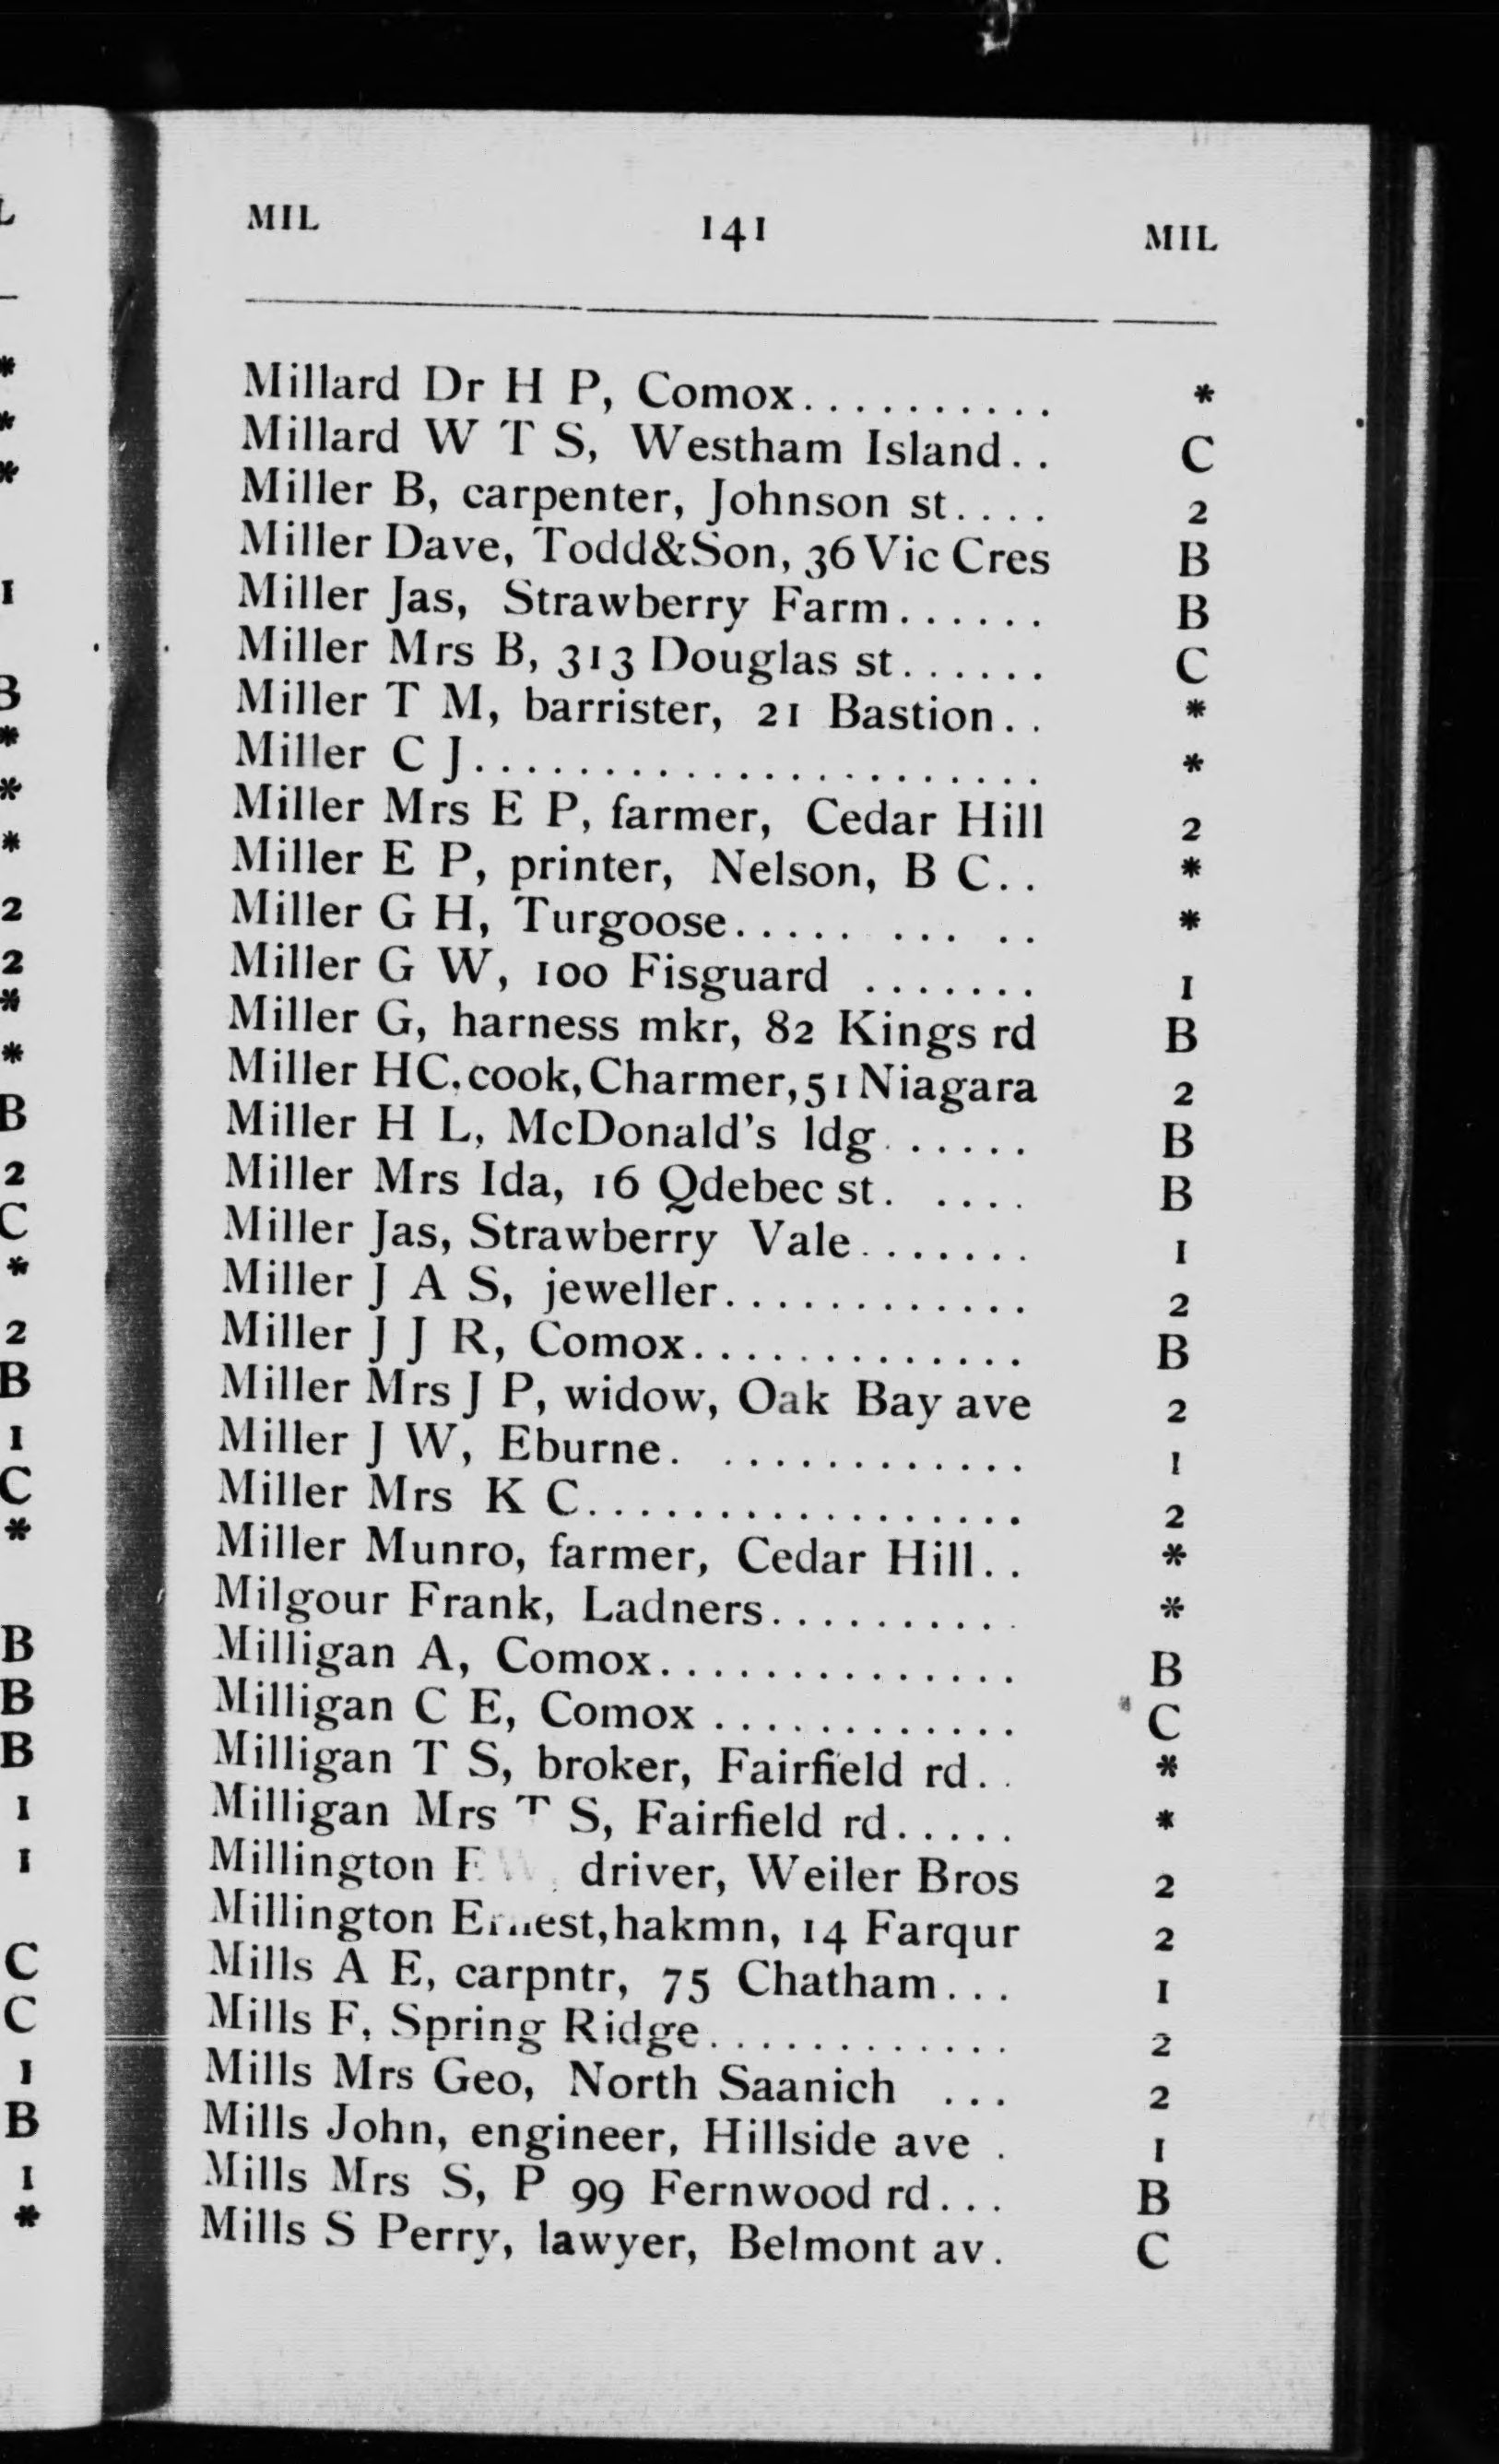 MIL 141 MIL
Millard Dr H P, Comox.......... *
Millard W T S, Westham Island.. C
Miller B, carpenter, Johnson st.... 2
Miller Dave, Todd&Son, 36 Vic Cres B
Miller Jas, Strawberry Farm...... B
Miller Mrs B, 313 Douglas st...... C
Miller T M, barrister, 21 Bastion.. *
Miller C J...................... *
Miller Mrs E P, farmer, Cedar Hill 2
Miller E P, printer, Nelson, B C.. *
Miller G H, Turgoose..... ... .. *
Miller G W, 100 Fisguard ....... 1
Miller G, harness mkr, 82 Kings rd B
Miller HC, cook, Charmer, 51 Niagara 2
Miller H L, McDonald's ldg...... B
Miller Mrs Ida, 16 Qdebec st. .... B
Miller Jas, Strawberry Vale....... 1
Miller J A S, jeweller............ 2
Miller J J R, Comox............. B
Miller Mrs J P, widow, Oak Bay ave 2
Miller J W, Eburne. ............ 1
Miller Mrs K C................. 2
Miller Munro, farmer, Cedar Hill.. *
Milgour Frank, Ladners.......... *
Milligan A, Comox.............. B
Milligan C E, Comox ............ C
Milligan T S, broker, Fairfield rd.. *
Milligan Mrs T S, Fairfield rd..... *
Millington F W, driver, Weiler Bros 2
Millington Ernest, hakmn, 14 Farqur 2
Mills A E, carpntr, 75 Chatham... 1
Mills F, Spring Ridge............ 2
Mills Mrs Geo, North Saanich ... 2
Mills John, engineer, Hillside ave . 1
Mills Mrs S, P 99 Fernwood rd... B
Mills S Perry, lawyer, Belmont av. C